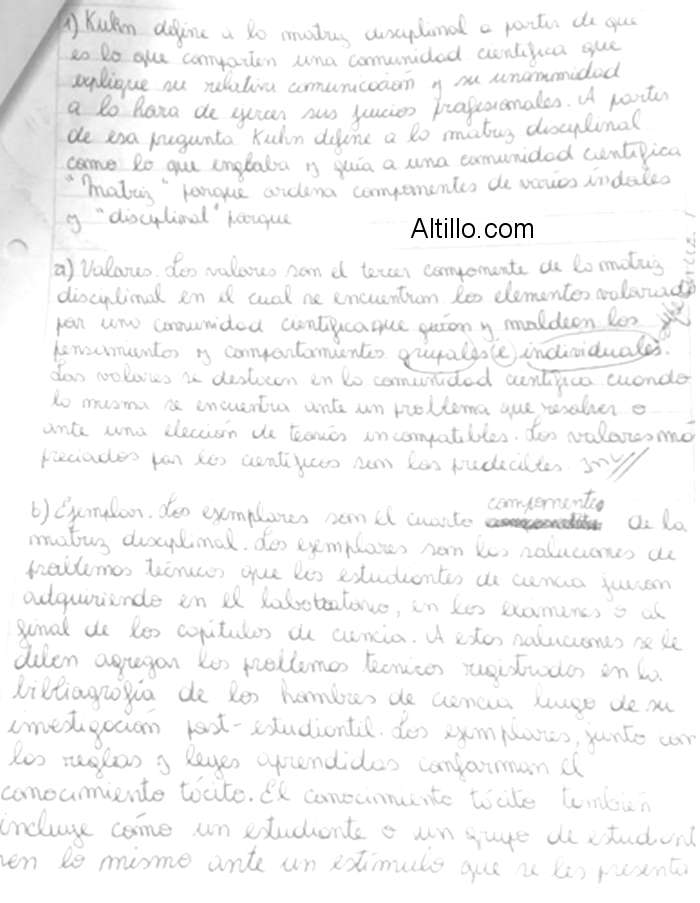 1) Kuhn define a la matriz disciplinal a partir de que
es lo que comparten una comunidad científica que
explique su relativa comunicación y su unanimidad
a la hora de ejercer sus juicios profesionales. A partir
de esa pregunta Kuhn define a la matriz disciplinal
como lo que englaba y guía a una comunidad científica
"Matriz" porque ordena componentes de varios índoles
y "disciplinal" porque
Altillo.com
a) Valores. Los valores son el tercer componente de la matriz
disciplinal en el cual se encuentran los elementos valorados
por una comunidad científica que guían y moldean los
pensamientos y comportamientos grupales e individuales.
Los valores se destacan en la comunidad científica cuando
la misma se encuentra ante un problema que resolver o
ante una elección de teorías incompatibles. Los valores más
preciados por los científicos son las predecibles.
b) Ejemplar. Los ejemplares son el cuarto componente de la
matriz disciplinal. Los ejemplares son las soluciones de
problemas técnicos que los estudiantes de ciencia fueron
adquiriendo en el laboratorio, en los exámenes o al
final de los capítulos de ciencia. A estas soluciones se le
deben agregar los problemas tecnicos registrados en la
bibliografía de los hombres de ciencia luego de su
investigación post-estudiantil. Los ejemplares, junto con
las reglas y leyes aprendidas conforman el
conocimiento tácito. El conocimiento tácito también
incluye cómo un estudiante o un grupo de estudiant
ven lo mismo ante un estímulo que se les presenta